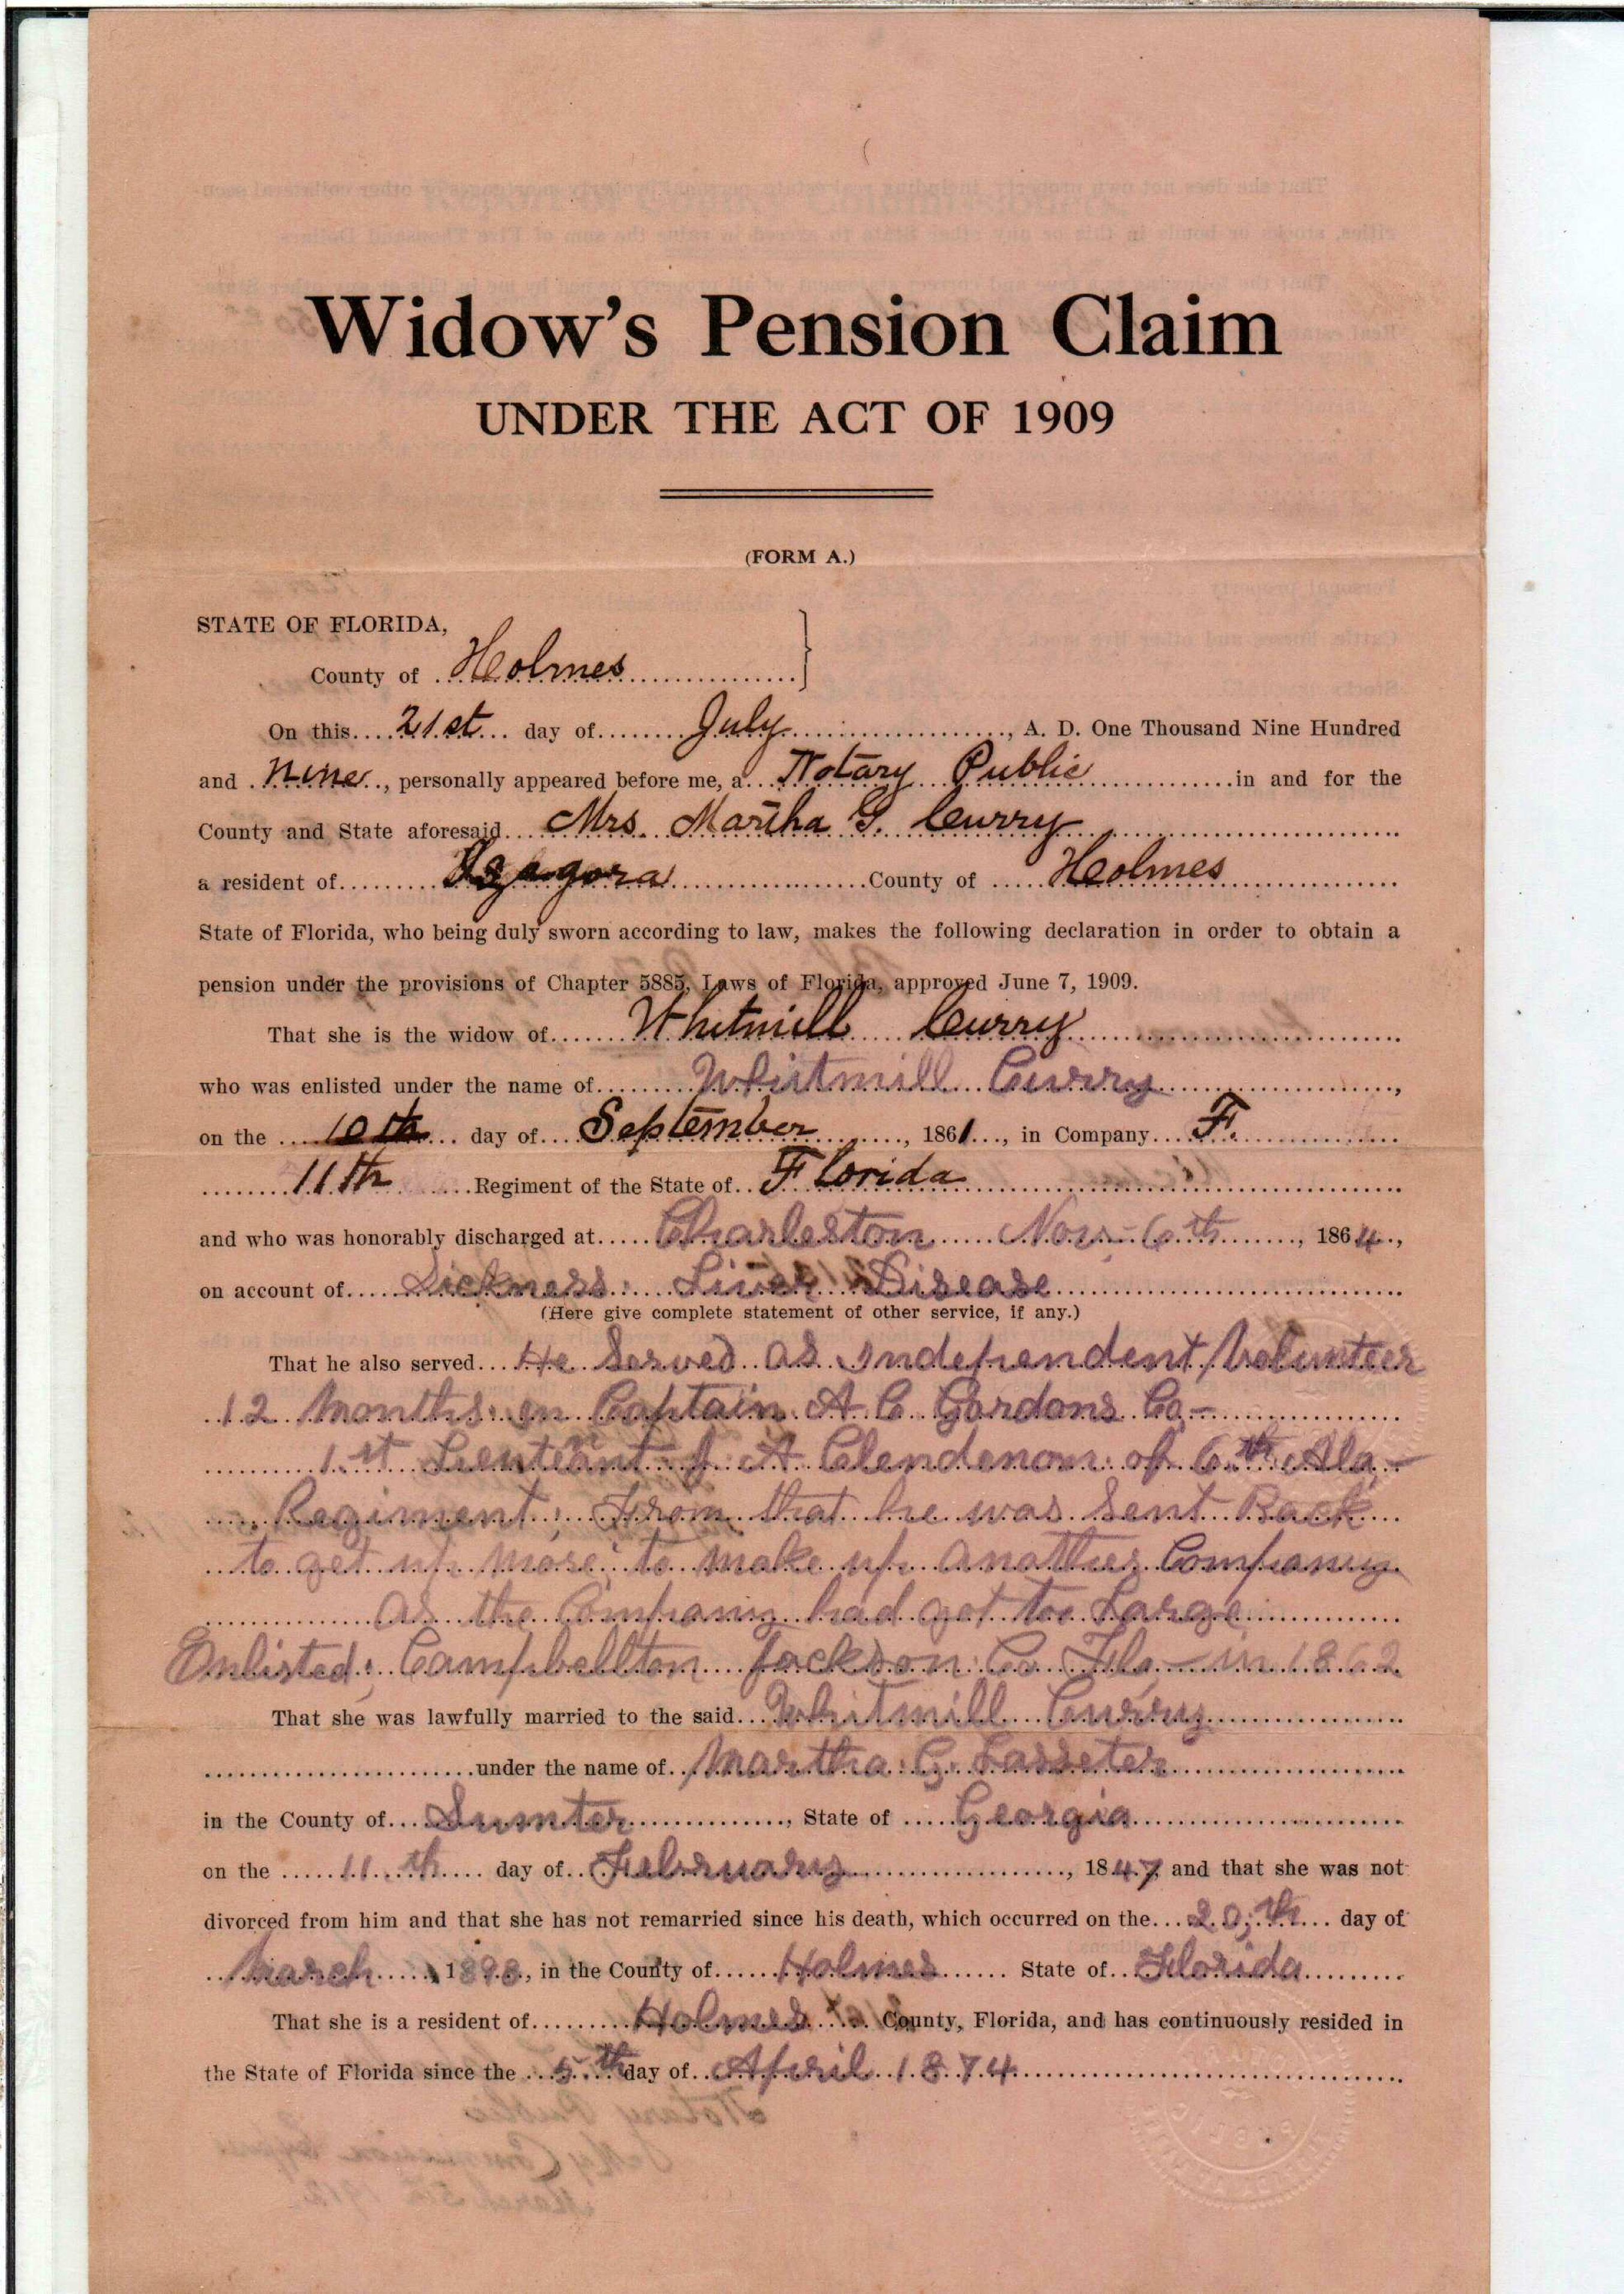 Widow's Pension Claim
UNDER THE ACT OF 1909
(FORM A.)
STATE OF FLORIDA,
County of Holmes
On this 21st day of July, A. D. One Thousand Nine Hundred
and nine, personally appeared before me, a Notary Public in and for the
County and State aforesaid Mrs. Martha G. Curry
a resident of County of Holmes
State of Florida, who being duly sworn according to law, makes the following declaration in order to obtain a
pension under the provisions of Chapter 5885, Laws of Florida, approved June 7, 1909.
That she is the widow of Whitmill Curry
who was enlisted under the name of Whitmill Curry,
on the 10th day of September, 1861, in Company F.
11th Regiment of the State of Florida
and who was honorably discharged at Charleston Nov-6th, 1864,
on account of Sickness: Liver Disease
(Here give complete statement of other service, if any.)
That he also served He Served as Independent Volunteer
12 months in Captain A C Gordons Co-
1st Lieutenant J. A Clendenon of 6th Ala-
Regiment; From that he was Sent Back
to get up more to make up another Company
as the Company had got too Large
Enlisted: Campbellton Jackson Co Fla- in 1862
That she was lawfully married to the said Whitmill Curry
under the name of Martha G. Lasseter
in the County of Sumter, State of Georgia
on the 11th day of February, 1847, and that she was not
divorced from him and that she has not remarried since his death, which occurred on the 20th day of
March 1898, in the County of Holmes State of Florida
That she is a resident of Holmes County, Florida, and has continuously resided in
the State of Florida since the 5th day of April 1874